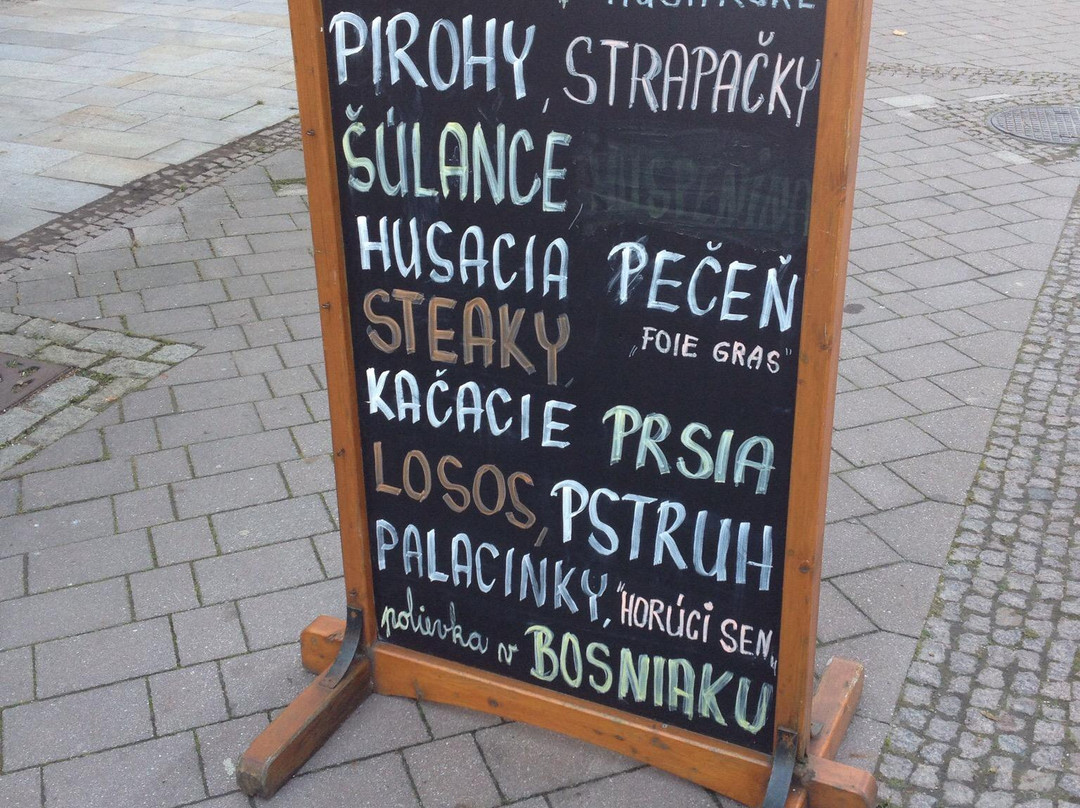 PIROHY, STRAPAČKY
ŠÚLANCE,
HUSACIA PEČEŇ
„FOIE GRAS"
STEAKY,
KAČACIE PRSIA
LOSOS, PSTRUH
PALACINKY, "HORÚCI SEN„
polievka v BOSNIAKU